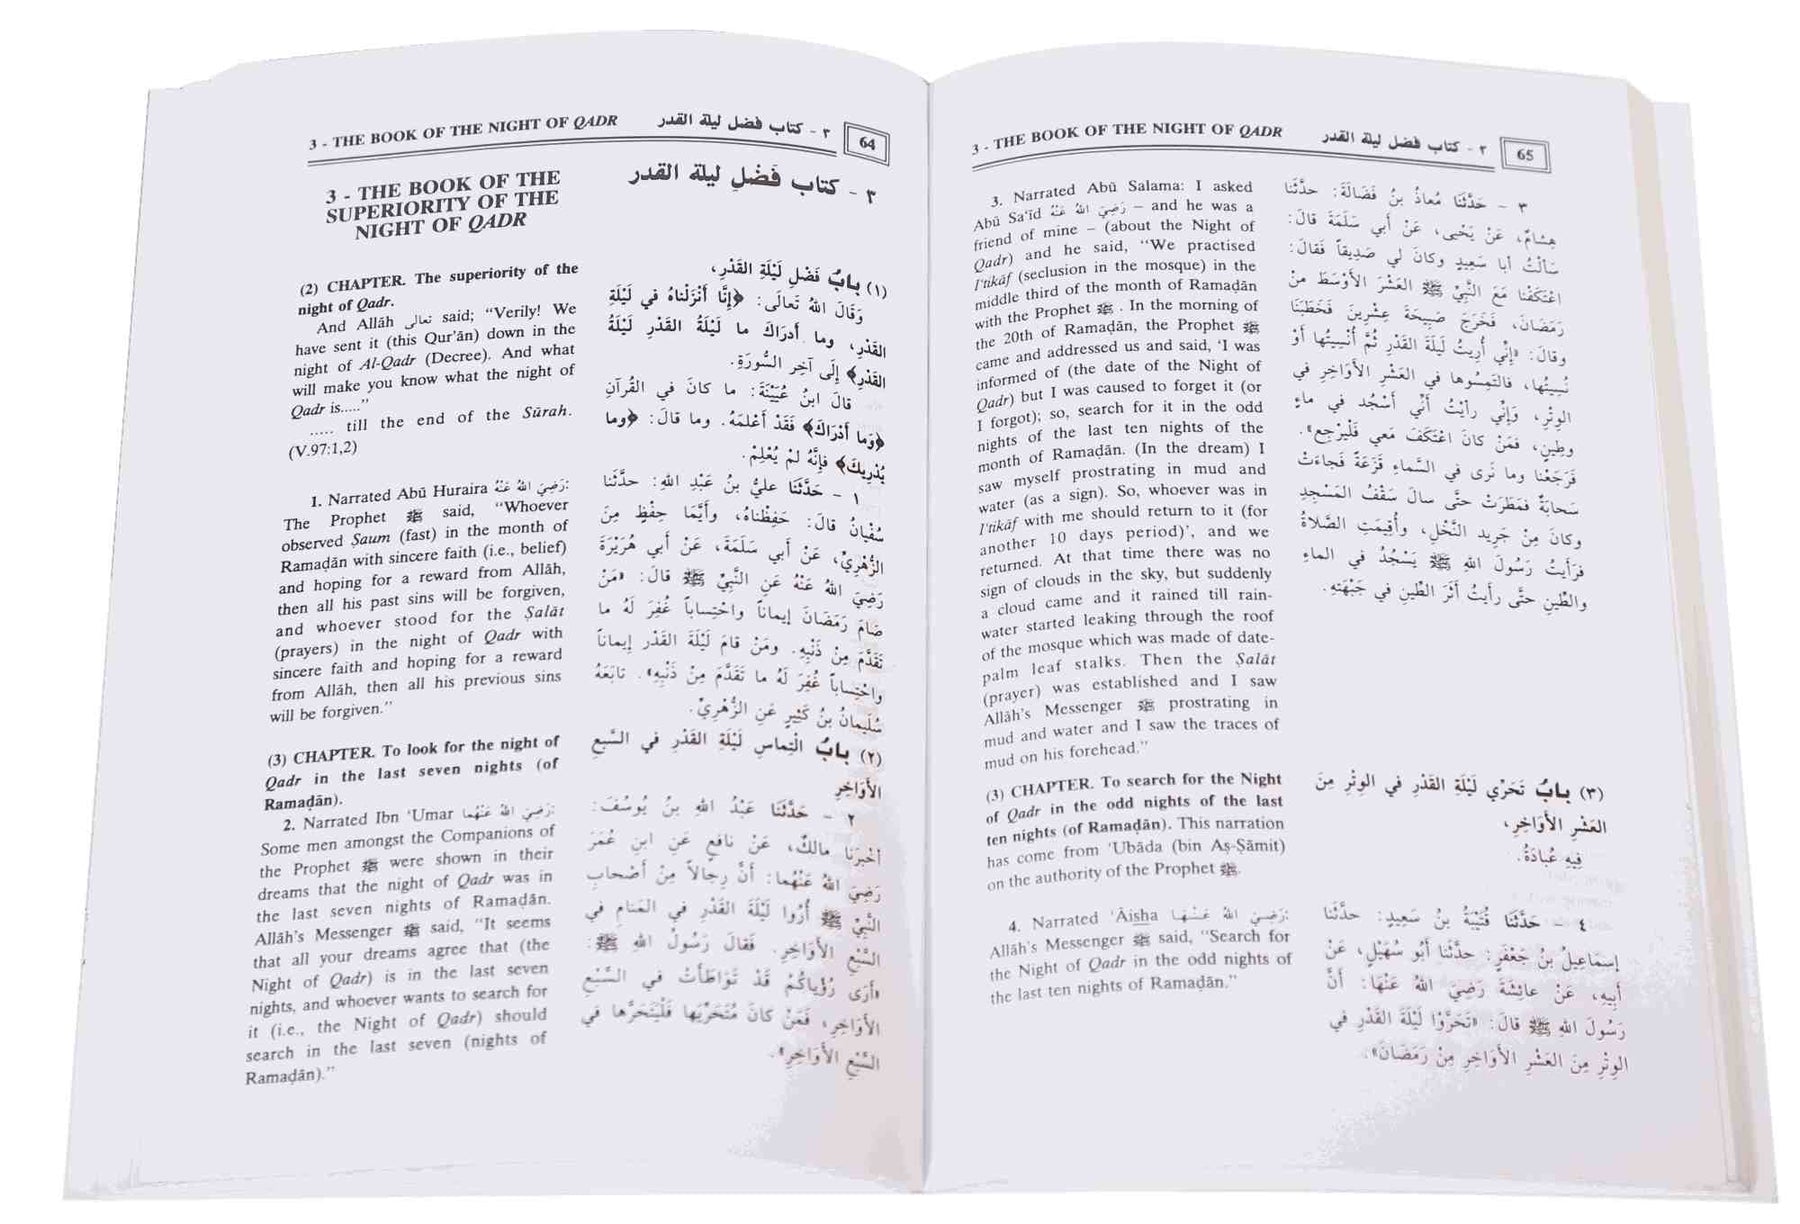 3 - THE BOOK OF THE NIGHT OF QADR
٣ - كتاب فضل ليلة القدر
64
3 - THE BOOK OF THE
SUPERIORITY OF THE
NIGHT OF QADR
٣ - كتاب فَضْلِ ليلة القدر
(2) CHAPTER. The superiority of the
night of Qadr.
And Allāh تعالى said; “Verily! We
have sent it (this Qur’ān) down in the
night of Al-Qadr (Decree). And what
will make you know what the night of
Qadr is.....”
..... till the end of the Sūrah.
(V.97:1,2)
1. Narrated Abū Huraira رَضِيَ اللهُ عَنْهُ:
The Prophet ﷺ said, “Whoever
observed Ṣaum (fast) in the month of
Ramaḍān with sincere faith (i.e., belief)
and hoping for a reward from Allāh,
then all his past sins will be forgiven,
and whoever stood for the Ṣalāt
(prayers) in the night of Qadr with
sincere faith and hoping for a reward
from Allāh, then all his previous sins
will be forgiven.”
(3) CHAPTER. To look for the night of
Qadr in the last seven nights (of
Ramaḍān).
2. Narrated Ibn ‘Umar رَضِيَ اللهُ عَنْهُما:
Some men amongst the Companions of
the Prophet ﷺ were shown in their
dreams that the night of Qadr was in
the last seven nights of Ramaḍān.
Allāh’s Messenger ﷺ said, “It seems
that all your dreams agree that (the
Night of Qadr) is in the last seven
nights, and whoever wants to search for
it (i.e., the Night of Qadr) should
search in the last seven (nights of
Ramaḍān).”
(١) بابُ فَضْلِ لَيْلَةِ القَدْرِ،
وَقَالَ اللهُ تَعالَى: ﴿إِنَّا أَنْزَلْنَاهُ في لَيْلَةِ
القَدْرِ، وما أدرَاكَ ما لَيْلَةُ القَدْرِ لَيْلَةُ
القَدْرِ﴾ إلَى آخِرِ السُّورَةِ.
قَالَ ابنُ عُيَيْنَةَ: ما كانَ في القُرآنِ
﴿وَما أَدْرَاكَ﴾ فَقَدْ أَعْلَمَهُ. وما قالَ: ﴿وما
يُدْرِيكَ﴾ فإنَّهُ لمْ يُعْلِمْ.
١ - حَدَّثَنا عليُّ بنُ عَبْدِ اللهِ: حدَّثَنا
سُفْيانُ قالَ: حَفِظْناهُ، وأَيَّما حِفْظٍ مِنَ
الزُّهْرِيِّ، عَنْ أبي سَلَمَةَ، عَنْ أبي هُرَيْرَةَ
رَضِيَ اللهُ عَنْهُ عَنِ النَّبِيِّ ﷺ قالَ: «مَنْ
صَامَ رَمَضَانَ إيماناً واحْتِساباً غُفِرَ لَهُ ما
تَقَدَّمَ مِنْ ذَنْبِهِ. ومَنْ قامَ لَيْلَةَ القَدْرِ إيماناً
واحْتِساباً غُفِرَ لَهُ ما تَقَدَّمَ مِنْ ذَنْبِهِ». تابَعَهُ
سُلَيمانُ بنُ كَثيرٍ عَنِ الزُّهْرِيِّ.
(٢) بابُ الْتِماسِ لَيْلَةِ القَدْرِ في السَّبعِ
الأوَاخِرِ
٢ - حَدَّثَنا عَبْدُ اللهِ بنُ يُوسُفَ:
أخبرَنا مالكٌ، عَنْ نافعٍ عَنِ ابنِ عُمَرَ
رَضِيَ اللهُ عَنْهُما: أنَّ رِجالاً مِنْ أصْحابِ
النَّبِيِّ ﷺ أُرُوا لَيْلَةَ القَدْرِ في المَنامِ في
السَّبْعِ الأوَاخِرِ. فَقالَ رَسُولُ اللهِ ﷺ:
«أرَى رُؤْياكُمْ قَدْ تَوَاطَأَتْ في السَّبْعِ
الأوَاخِرِ، فَمَنْ كانَ مُتَحَرِّيها فَلْيَتَحَرَّها في
السَّبْعِ الأوَاخِرِ».
3 - THE BOOK OF THE NIGHT OF QADR
٣ - كتاب فضل ليلة القدر
65
3. Narrated Abū Salama: I asked
Abū Sa‘īd رَضِيَ اللهُ عَنْهُ – and he was a
friend of mine – (about the Night of
Qadr) and he said, “We practised
I‘tikāf (seclusion in the mosque) in the
middle third of the month of Ramaḍān
with the Prophet ﷺ . In the morning of
the 20th of Ramaḍān, the Prophet ﷺ
came and addressed us and said, ‘I was
informed of (the date of the Night of
Qadr) but I was caused to forget it (or
I forgot); so, search for it in the odd
nights of the last ten nights of the
month of Ramaḍān. (In the dream) I
saw myself prostrating in mud and
water (as a sign). So, whoever was in
I‘tikāf with me should return to it (for
another 10 days period)’, and we
returned. At that time there was no
sign of clouds in the sky, but suddenly
a cloud came and it rained till rain-
water started leaking through the roof
of the mosque which was made of date-
palm leaf stalks. Then the Ṣalāt
(prayer) was established and I saw
Allāh’s Messenger ﷺ prostrating in
mud and water and I saw the traces of
mud on his forehead.”
(3) CHAPTER. To search for the Night
of Qadr in the odd nights of the last
ten nights (of Ramaḍān). This narration
has come from ‘Ubāda (bin Aṣ-Ṣāmit)
on the authority of the Prophet ﷺ.
4. Narrated ‘Āisha رَضِيَ اللهُ عَنْهَا:
Allāh’s Messenger ﷺ said, “Search for
the Night of Qadr in the odd nights of
the last ten nights of Ramaḍān.”
٣ - حَدَّثَنَا مُعاذُ بنُ فَضَالَةَ: حدَّثَنا
هِشامٌ، عَنْ يَحْيى، عَنْ أبي سَلَمَةَ قالَ:
سَألْتُ أبا سَعِيدٍ وكانَ لي صَدِيقاً فَقالَ:
اعْتَكَفْنا مَعَ النَّبيِّ ﷺ العَشْرَ الأوْسَطَ منْ
رَمَضَانَ، فَخَرَجَ صَبِيحَةَ عِشْرِينَ فَخَطَبَنَا
وقالَ: «إنِّي أُرِيتُ لَيلَةَ القَدْرِ ثُمَّ أُنْسِيتُها أوْ
نُسِّيتُها، فالتَمِسُوها في العَشْرِ الأوَاخِرِ في
الوِتْرِ، وَإنِّي رأيْتُ أنِّي أسْجُد في ماءٍ
وطِينٍ، فمَنْ كانَ اعْتَكَفَ مَعي فَلْيَرْجِع».
فَرَجَعْنا وما نَرَى في السَّماءِ قَزَعَةً فَجاءَتْ
سَحابَةٌ فمَطَرَتْ حتَّى سالَ سَقْفُ المَسْجِدِ
وكانَ مِنْ جَرِيدِ النَّخْلِ، وأُقِيمَتِ الصَّلاةُ
فرَأيتُ رَسُولَ اللهِ ﷺ يَسْجُدُ في الماءِ
والطِّينِ حتَّى رأيتُ أثَرَ الطِّينِ في جَبْهَتهِ.
(٣) بابُ تَحَرِّي لَيْلَةِ القَدْرِ في الوِتْرِ مِنَ
العَشْرِ الأوَاخِرِ،
فِيهِ عُبادَةُ.
٤ - حَدَّثَنا قُتَيْبَةُ بنُ سَعِيدٍ: حدَّثَنا
إسماعِيلُ بنُ جَعْفَرٍ: حدَّثَنا أَبُو سُهَيْلٍ، عَنْ
أبيهِ، عَنْ عائِشَةَ رَضِيَ اللهُ عَنْهَا: أنَّ
رَسُولَ اللهِ ﷺ قالَ: «تَحَرَّوْا لَيْلَةَ القَدْرِ في
الوِتْرِ مِنَ العَشْرِ الأوَاخِرِ مِنْ رَمَضَانَ».